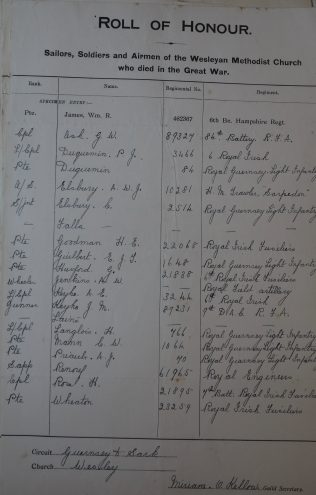 ROLL OF HONOUR.
Sailors, Soldiers and Airmen of the Wesleyan Methodist Church
who died in the Great War.
Rank. Name. Regimental No. Regiment.
SPECIMEN ENTRY—
Pte. James, Wm. R. 462367 6th Bn. Hampshire Regt.
Cpl Ash. G. W. 89327 84th Battery. R. F. A.
L/Cpl Duquemin P. J. 3466 6 Royal Irish
Pte Duquemin 84 Royal Guernsey Light Infantry
Elsbury A. W. J. 10281 H. M. Trawler "Sarpedon"
S/Sjt Elsbury C. 2514 Royal Guernsey Light Infantry
— Falla — — —
Pte Goodman H. E. 22068 Royal Irish Fusiliers
Pte Guilbert E. J. 1648 Royal Guernsey Light Infantry
Pte Huxford G. 21838 6th Royal Irish Fusiliers
Wheeler Jenkins A. W. — Royal Field Artillery
L/Cpl Keyho A. E. 3244 6th Royal Irish
Gunner Keyho J. M. 87231 7th D.A.C. R. F. A.
— Lainé — —
L/Cpl Langlois H. 766 Royal Guernsey Light Infantry
Pte Mann C. W. 1064 Royal Guernsey Light Infantry
Pte A. J. 70 Royal Guernsey Light Infantry
Sapp Renouf 61965 Royal Engineers
Cpl Rose H. 21895 7th Batt. Royal Irish Fusiliers
Pte Wheaton 23259 Royal Irish Fusiliers
Circuit Guernsey & Sark
Church Wesley
Miriam O. Kellow Guild Secretary.